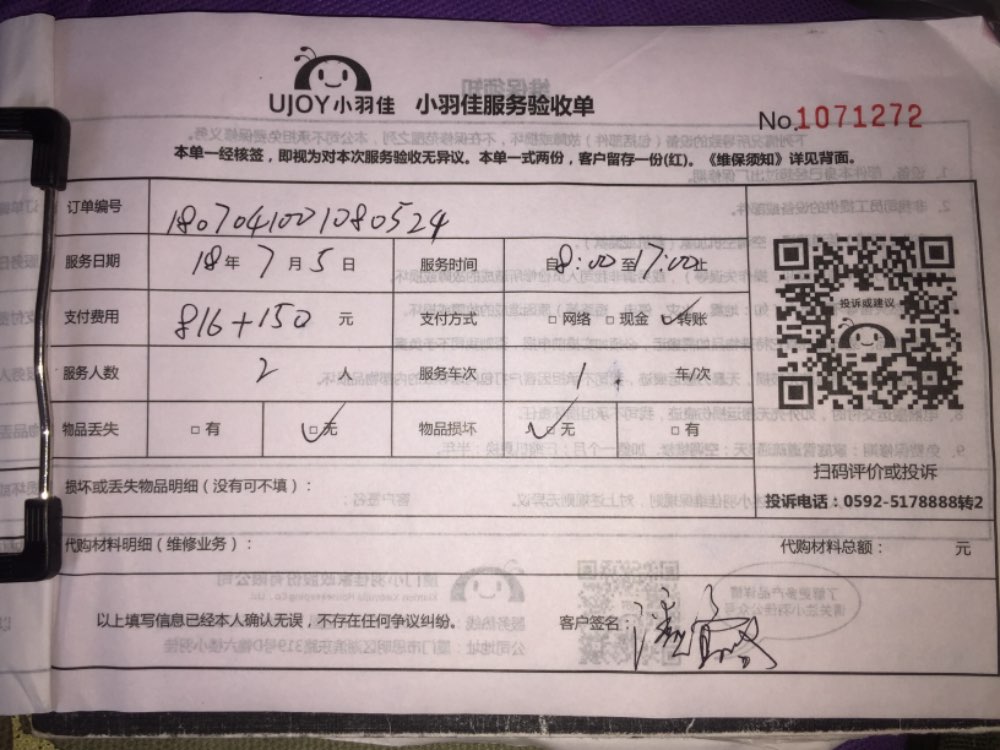 UJOY小羽佳 小羽佳服务验收单
No.1071272
本单一经核签，即视为对本次服务验收无异议。本单一式两份，客户留存一份(红)。《维保须知》详见背面。
订单编号 1807041001080524
服务日期 18年7月5日 服务时间 自8:00至17:00止
支付费用 816+150 元 支付方式 □网络 □现金 ☑转账
服务人数 2 人 服务车次 1 车/次
物品丢失 □有 ☑无 物品损坏 ☑无 □有
损坏或丢失物品明细（没有可不填）：
投诉或建议
扫码评价或投诉
投诉电话：0592-5178888转2
代购材料明细（维修业务）： 代购材料总额： 元
以上填写信息已经本人确认无误，不存在任何争议纠纷。 客户签名：